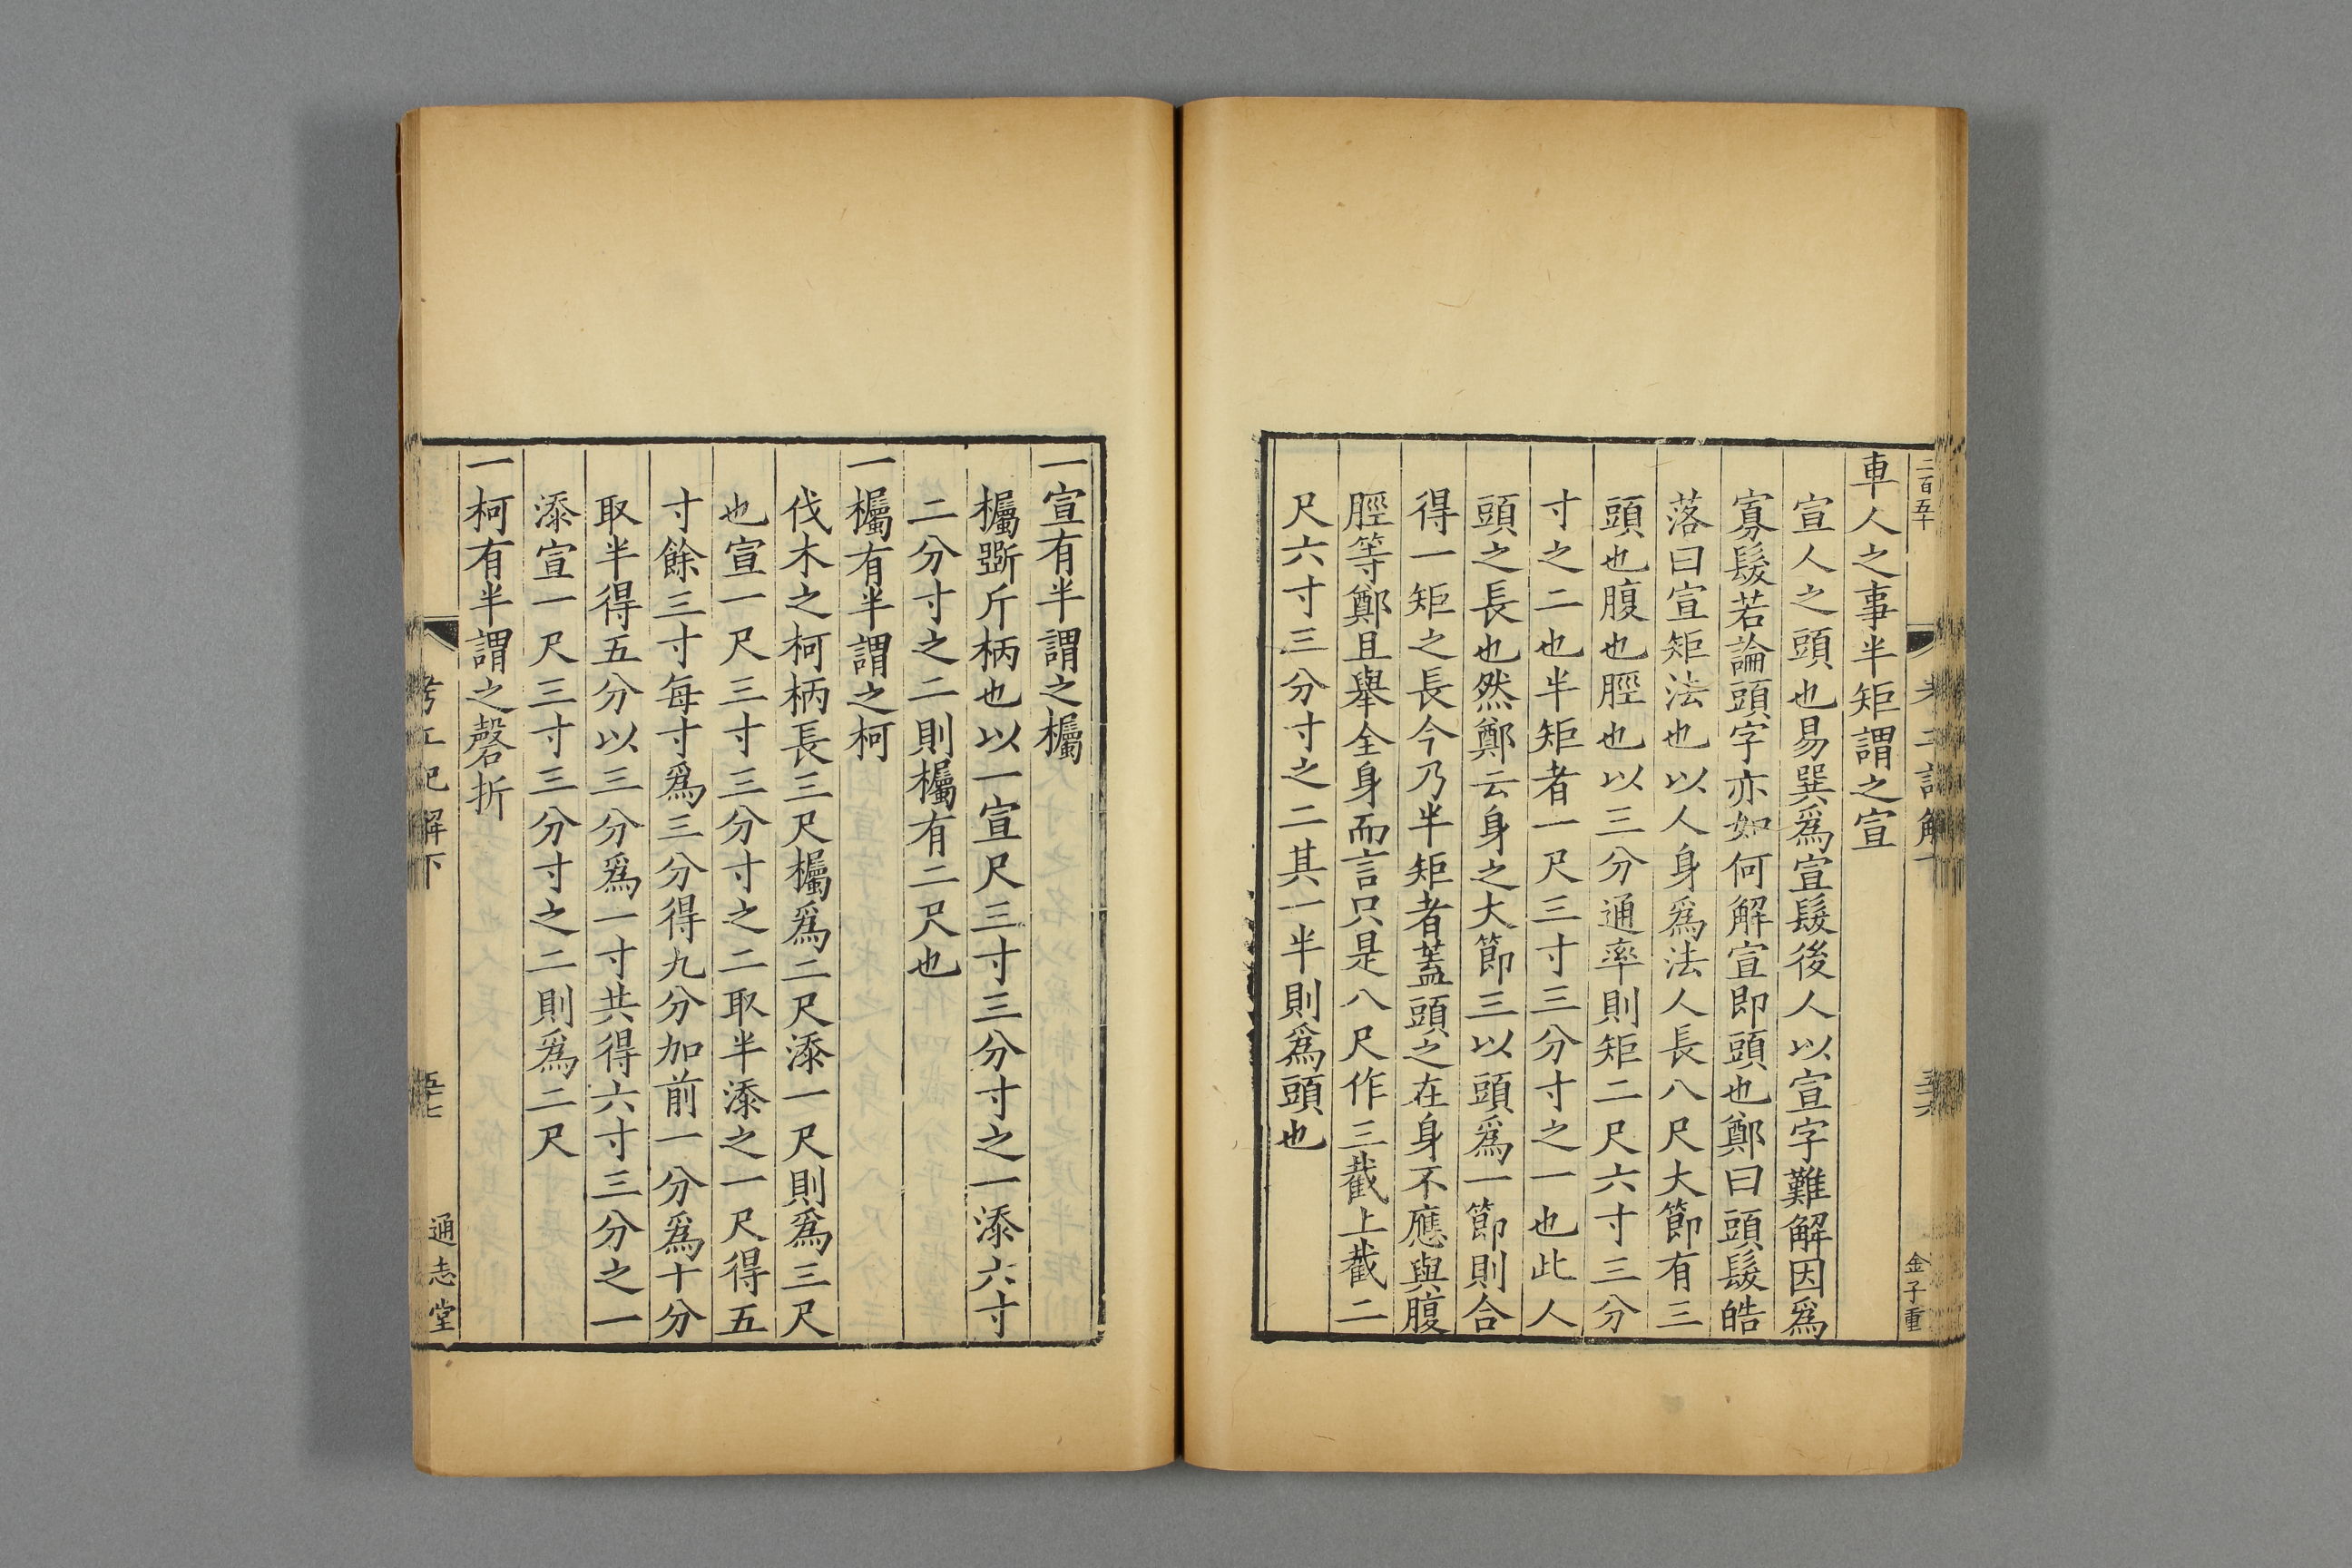 二百五十
金子重
車人之事半矩謂之宣
宣人之頭也易巽爲宣髮後人以宣字難解因爲
寡髮若論頭字亦如何解宣即頭也鄭曰頭髮皓
落曰宣矩法也以人身爲法人長八尺大節有三
頭也腹也脛也以三分通率則矩二尺六寸三分
寸之二也半矩者一尺三寸三分寸之一也此人
頭之長也然鄭云身之大節三以頭爲一節則合
得一矩之長今乃半矩者蓋頭之在身不應與腹
脛等鄭且舉全身而言只是八尺作三截上截二
尺六寸三分寸之二其一半則爲頭也
一宣有半謂之欘
欘斲斤柄也以一宣尺三寸三分寸之一添六寸
二分寸之二則欘有二尺也
一欘有半謂之柯
伐木之柯柄長三尺欘爲二尺添一尺則爲三尺
也宣一尺三寸三分寸之二取半添之一尺得五
寸餘三寸每寸爲三分得九分加前一分爲十分
取半得五分以三分爲一寸共得六寸三分之一
添宣一尺三寸三分寸之二則爲二尺
一柯有半謂之磬折
考工記解下
五七
通志堂